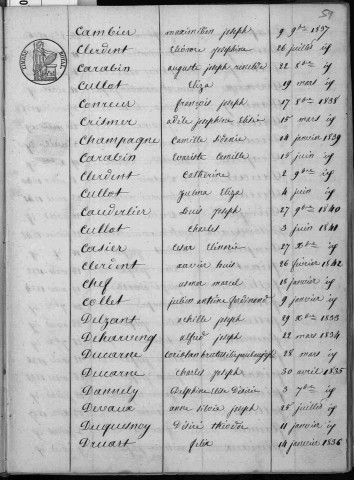 59
Cambier maximilien joseph 9 9bre 1837
Clerdent éléonore joséphine 26 juillet id
Carabin auguste joseph 22 Xbre id
Cullot Eliza 19 mars id
Conreur françois joseph 17 Xbre 1838
Crismer adèle joséphine 15 mars id
Champagne Camille 14 janvier 1839
Carabin Evariste Camille 18 juin id
Clerdent Catherine 2 9bre id
Cullot Zulma Eliza 4 juin id
Cauderlier Louis joseph 27 9bre 1840
Cullot Charles 3 juin 1841
Casier César 27 Xbre id
Clerdent xavier Louis 26 février 1842
Chef marcel 18 janvier id
Collet julien antoine 9 janvier id
Delzant achille joseph 29 Xbre 1833
Deharveng alfred joseph 22 mars 1834
Ducarne 28 mars id
Ducarne Charles joseph 30 avril 1835
Dannely Delphine Désirée 3 7bre id
Devaux anne joseph 25 juillet id
Duquesnoy Désiré théodore 11 janvier id
Druart félix 14 janvier 1836